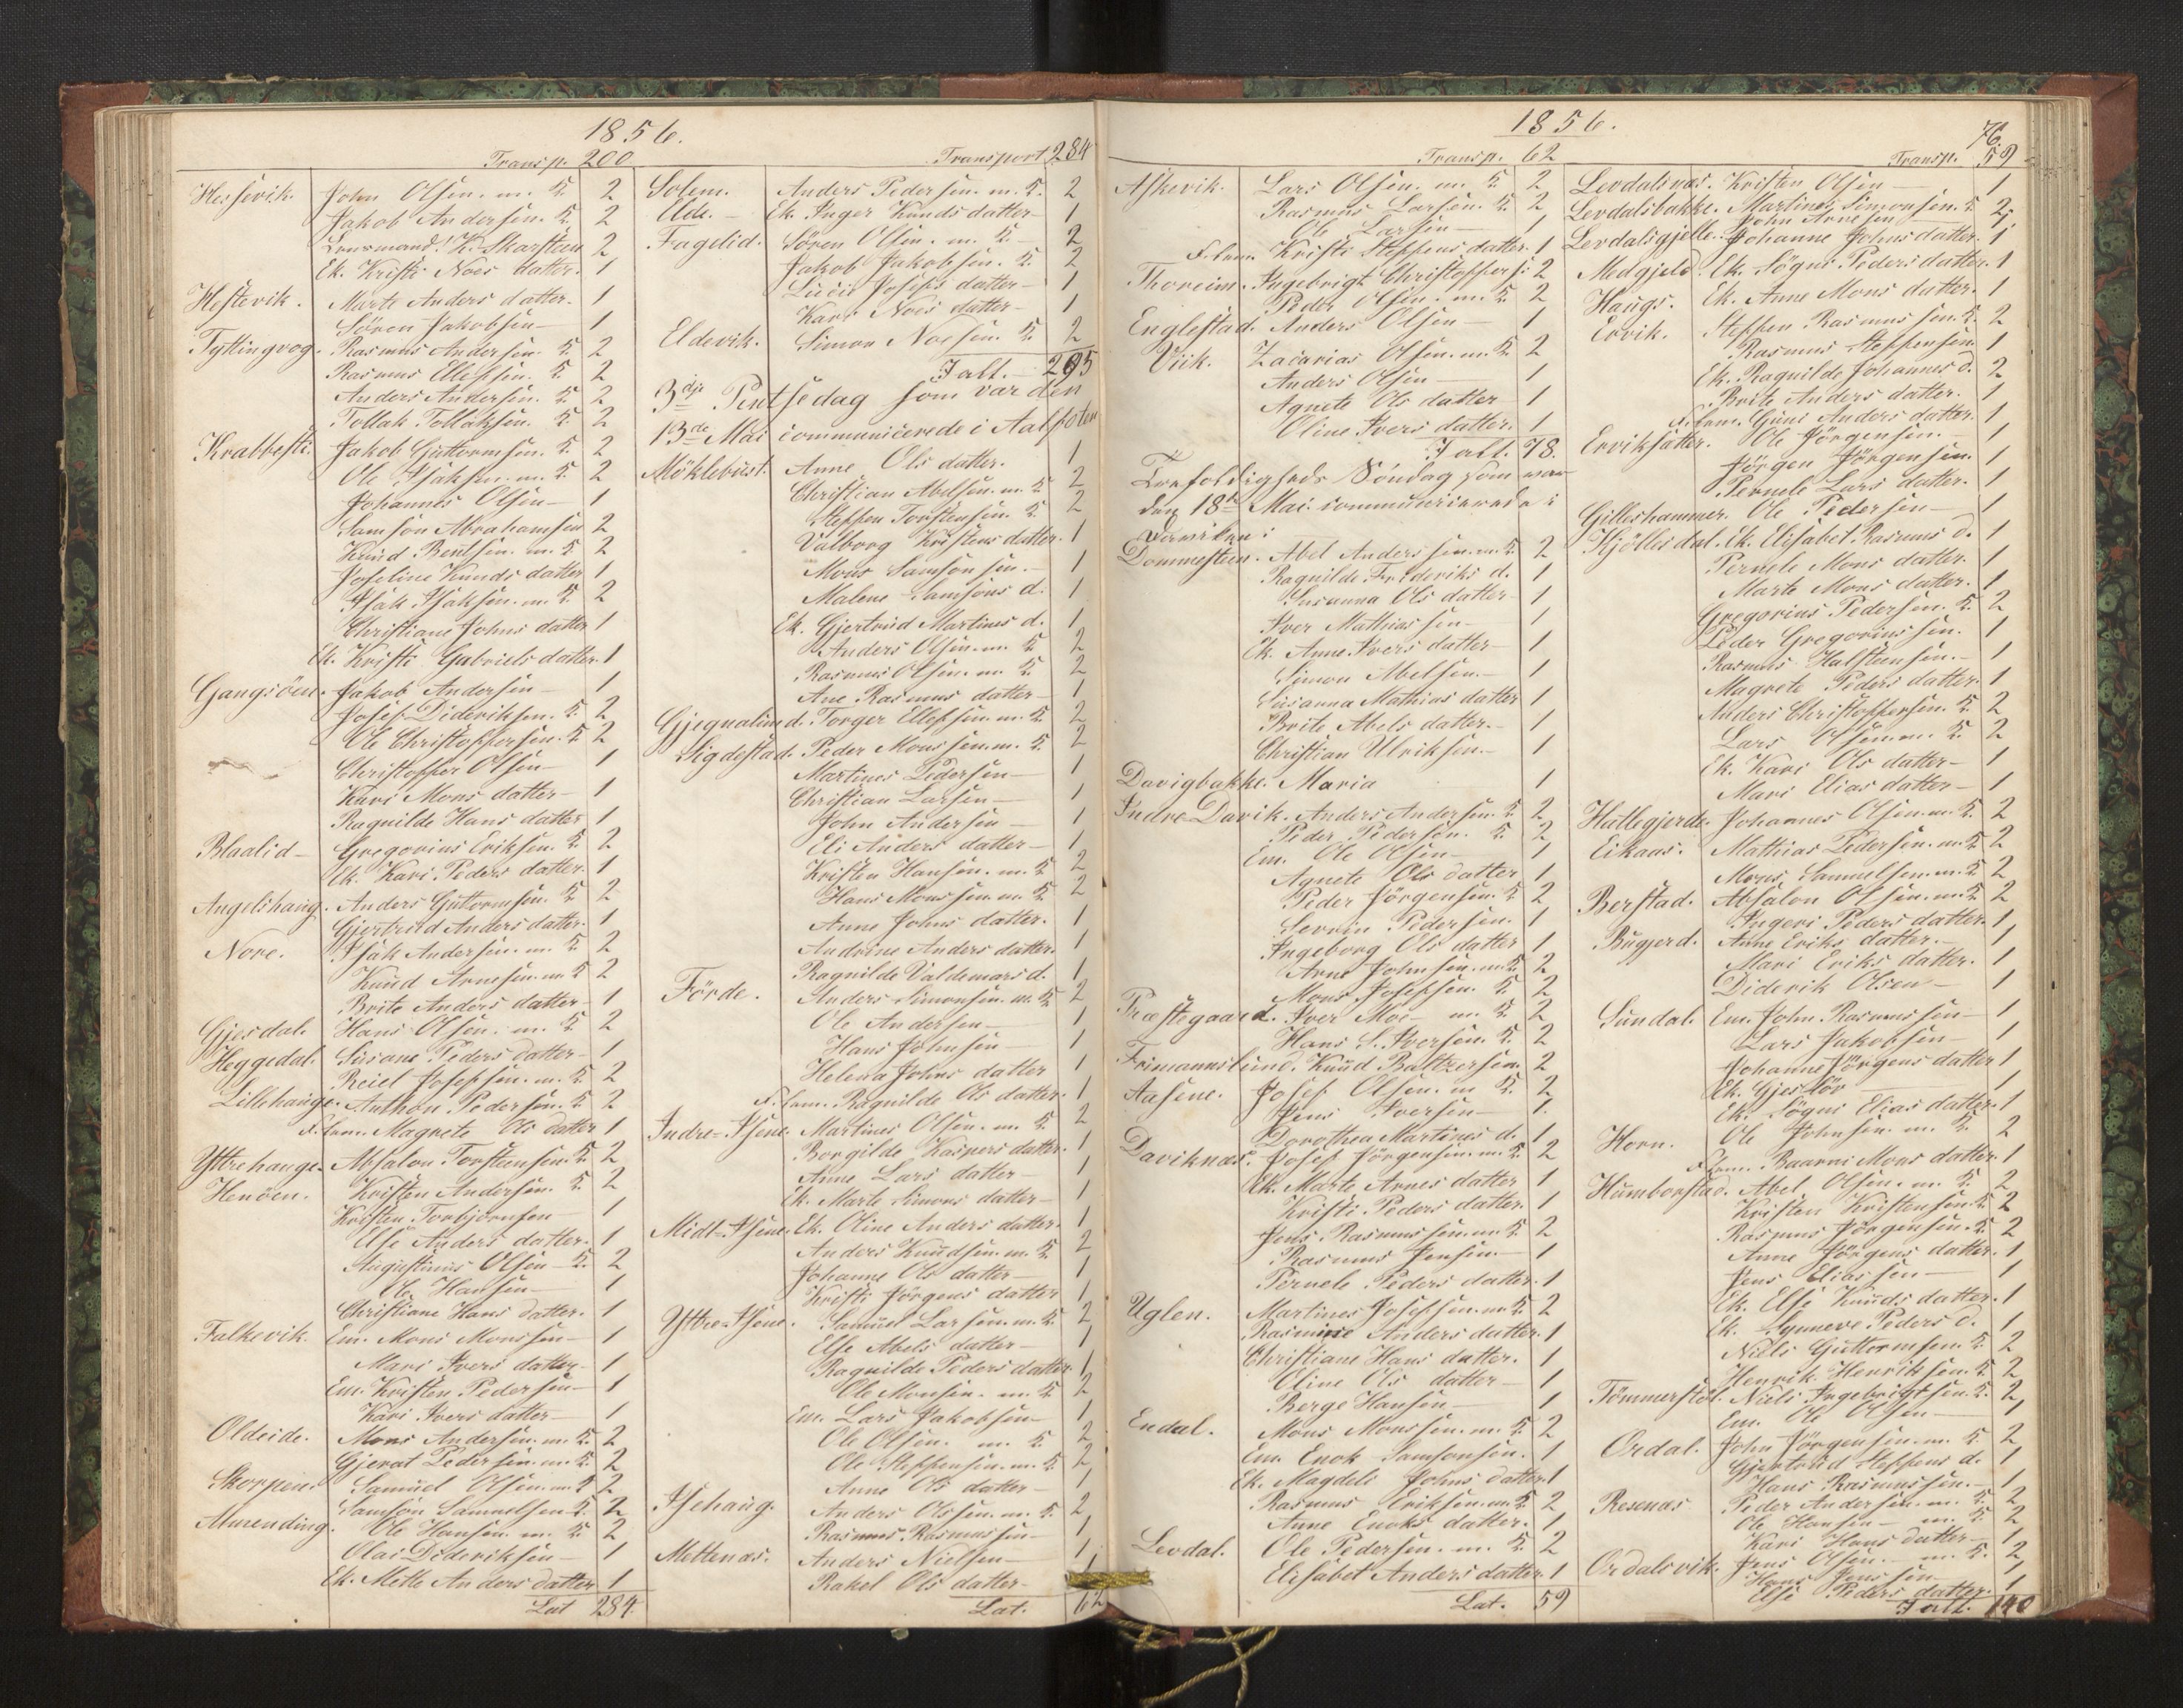 1856.
Transp. 200
Hessevik. John Olsen. m. K. 2
Jakob Andersen. K. 2
Lensmand! K. Skarsteen 2
Ek. Kristi Noes datter. 1
Hestevik. Marte Anders datter. 1
Sören Jakobsen – 1
Tytlingvog. Rasmus Andersen. K. 2
Rasmus Ellefsen. K. 2
Anders Andersen. K. 2
Tollak Tollaksen. K. 2
Krabbesti. Jakob Guttormsen. K. 2
Ole Isaksen. m. K. 2
Johannes Olsen – 1
Samson Abrahamsen 2
Knud Bentsen. m. K. 2
Joseline Knuds datter 1
Isak Isaksen. m. K. 2
Christiane Johns datter 1
Ek. Kristi Gabriels datter. 1
Gangsöen. Jakob Andersen – 1
Josef Dideriksen. K. 2
Ole Christoffersen. K. 2
Christoffer Olsen – 1
Kari Mons datter – 1
Ragnilde Hans datter 1
Blaalid – Gregorius Eriksen. K. 2
Ek. Kari Peders datter. 1
Angelshaug. Anders Guttormsen. K. 2
Gjertrud Anders datter. 1
Nore. Isak Andersen. m. K. 2
Knud Arnesen. m. K. 2
Brite Anders datter – 1
Gjesdal. Hans Olsen. m. K. 2
Heggedal. Susane Peders datter – 1
Reiel Josefsen. m. K. 2
Lillehauge. Anthon Pedersen. K. 2
F. lem. Magrete Ols datter 1
Yttrehauge. Absalon Torsteensen. K. 2
Henöen. Kristen Andersen. K. 2
Kristen Torbjörnsen – 1
Else Anders datter. 1
Augustinus Olsen – K. 2
Ole Hansen – 1
Christiane Hans datter. 1
Falkevik. Em. Mons Monssen – 1
Mari Ivers datter – 1
Em. Kristen Pedersen – 1
Kari Ivers datter – 1
Oldeide. Mons Andersen. m. K. 2
Gjerat Pedersen. m. K. 2
Skorpen. Samuel Olsen. m. K. 2
Samson Samuelsen. K. 2
Murending. Ole Hansen. m. K. 2
Olai Dideriksen – 1
Ek. Mette Anders datter 1
Lat 284.
Transport 284
Solem. Anders Pedersen. m. K. 2
Elde. – Ek. Inger Knuds datter – 1
Fagelid. Sören Olsen. m. K. – 2
Jakob Jakobsen. K. 2
Lucie Josefs datter – 1
Kari Noes datter – 1
Eldevik. Simon Noesen. K. 2
I alt. – 295
3die Pintsedag som var den
13de Mai communicerede i Aalfoten
Möklebust. Anne Ols datter. 1
Christian Abelsen. m. K. 2
Steffen Torstensen. K. 2
Valborg Kristens datter. 1
Mons Samsonsen. – 1
Malene Samsons d. 1
Ek. Gjertrud Martines d. 1
Anders Olsen. m. K. 2
Rasmus Olsen. m. K. 2
Ane Rasmus datter – 1
Gjegnalund. Torger Ellefsen. m. K. 2
Sigdestad. Peder Monssen. m. K. 2
Martines Pedersen – 1
Christian Larsen – 1
John Andersen – 1
Eli Anders datter – 1
Kristen Hansen. m. K. 2
Hans Monssen. m. K. 2
Anne Johns datter. 1
Andrine Anders datter. 1
Ragnilde Valdemars d. 1
Förde. Anders Simonsen. m. K. 2
Ole Andersen – 1
Hans Johnsen – 1
Helena Johns datter 1
F. lem. Ragnilde Ols datter. 1
Indre-Isene. Martines Olsen. m. K. 2
Borgilde Kaspers datter. 1
Anne Lars datter – 1
Ek. Marte Simons datter – 1
Midt-Isene. Ek. Oline Anders datter. 1
Anders Knudsen. m. K. 2
Johanne Ols datter – 1
Kristi Jörgens datter 1
Yttre-Isene. Samuel Larsen. m. K. 2
Else Abels datter – 1
Ragnilde Peders datter. 1
Ole Monsen. m. K. 2
Em. Lars Jakobsen – 1
Ole Olsen. m. K. 2
Ole Steffensen. m. K. 2
Anne Ols datter – 1
Isehaug. Anders Olssen. m. K. 2
Rasmus Rasmussen – 1
Mettenæs. Anders Nielsen – 1
Rakel Ols datter – 1
Lat. 62
1856.
76.
Transp. 62
Askevik. Lars Olsen. m. K. 2
Rasmus Larsen. K. 2
Ole Larsen – 1
F. lem. Kristi Steffens datter. 1
Thoreim. Ingebrigt Christoffers. 2
Peder Olsen. m. K. 2
Englestad. Anders Olsen – 1
Viik. Zacarias Olsen. m. K. 2
Anders Olsen – 1
Agnete Ols datter 1
Oline Ivers datter. 1
I alt. 78.
Trefoldigheds Söndag som var
den 18de Mai communicerede i
Daviken:
Dommesteen. Abel Andersen. m. K. 2
Ragnilde Frideriks d. 1
Susanna Ols datter 1
Iver Mathiassen – 1
Ek. Anne Ivers datter – 1
Simon Abelsen. – 1
Susanna Mathias datter 1
Brite Abels datter. – 1
Christian Ulriksen. – 1
Davigbakke. Maria 1
Indre Davik. Anders Andersen. K. 2
Peder Pedersen. K. 2
Em. Ole Olsen – 1
Agnete Ols datter 1
Peder Jörgensen. K. 2
Severin Pedersen. 1
Ingeborg Ols datter 1
Arne Johnsen. m. K. 2
Mons Josefsen. K. 2
Præstegaard. Iver Moe – m. K. 2
Hans S. Iversen. K. 2
Frimannslund. Knud Baltzersen. 2
Aasene. Josef Olsen. m. K. 2
Jens Iversen – 1.
Dorothea Martines d. 1
Daviknæs. Josef Jörgensen. m. K. 2
Ek. Marte Arnes datter 1
Kristi Peders datter. 1
Jens Rasmussen. m. K. 2
Rasmus Jensen. – 1
Pernele Peders datter. 1
Uglen. Martines Josefsen. m. K. 2
Rasmine Anders datter. 1
Christiane Hans datter. 1
Oline Ols datter – 1
Berge Hansen – 1
Endal. Mons Monssen. m. K. 2
Em. Enok Samsonsen. 1
Ek. Magdeli Johns datter. 1
Rasmus Eriksen. m. K. 2
Anne Enoks datter. 1
Levdal. Ole Pedersen. m. K. 2
Elisabet Anders datter. 1
Lat. 59
Transp. 59
Levdalsnæs. Kristen Olsen – 1
Levdalsbakke. Martines Simonsen. K. 2
John Arnesen 1
Levdalsgjelle. Johanne Johns datter. 1
Medgjeld. Ek. Sögni Peders datter. 1
Haugs. Ek. Anne Mons datter. 1
Ervik. Steffen Rasmussen. K. 2
Rasmus Steffensen 1
Ek. Ragnilde Johannes d. 2
Brite Anders datter. 1
F. lem. Guni Anders datter. 1
Erviksætter. Ole Jörgensen. – 1
Jörgen Jörgensen. 1
Pernele Lars datter. 1
Gilleshammer. Ole Pedersen – 1
Kjöllesdal. Ek. Elisabet Rasmus d. 1
Pernele Mons datter. 1
Marte Mons datter. 1
Gregorius Pedersen. K. 2
Peder Gregoriussen. 1
Rasmus Halsteensen. – 1
Magrete Peders datter. 1
Anders Christoffersen. K. 2
Lars Olsen. m. K. 2
Ek. Kari Ols datter – 1
Mari Elias datter – 1
Hallegjerde. Johannes Olsen. m. K. 2
Eikaas. Mathias Pedersen. m. K. 2
Mons Samuelsen. m. K. 2
Berstad. Absalon Olsen. m. K. 2
Ingeri Peders datter. 1
Bugjerd. Anne Eriks datter. – 1
Mari Eriks datter. 1
Diderik Olsen – 1
Sundal. Em. John Rasmussen – 1
Lars Jakobsen – 1
Johanne Jörgens datter 1
Ek. Gjeslör 1
Ek. Sögni Elias datter. 1
Horn. Ole Johnsen. m. K. 2
F. lem. Baarni Mons datter. 1
Humborstad. Abel Olsen. m. K. 2
Kristen Kristensen. K. 2
Rasmus Jörgensen. K. 2
Anne Jörgens datter. 1
Jens Eliassen – 1
Ek. Else Knuds datter. 1
Ek. Synneve Peders d. 1
Niels Guttormsen. K. 2
Henrik Henriksen. K. 2
Tömmerstöl. Niels Ingebrigtsen. K. 2
Em. Ole Olsen – 1
Ordal. John Jörgensen. m. K. 2
Gjertrud Steffens d. 1
Hans Rasmussen. – 1
Resenæs Peder Andersen. m. K. 2
Ole Hansen – m. K. 2
Kari Hans datter – 1
Ordalsvik. Jens Olsen. – m. K. 2
Hans Jenssen – 1
Else Peders datter. 1
I alt. 140